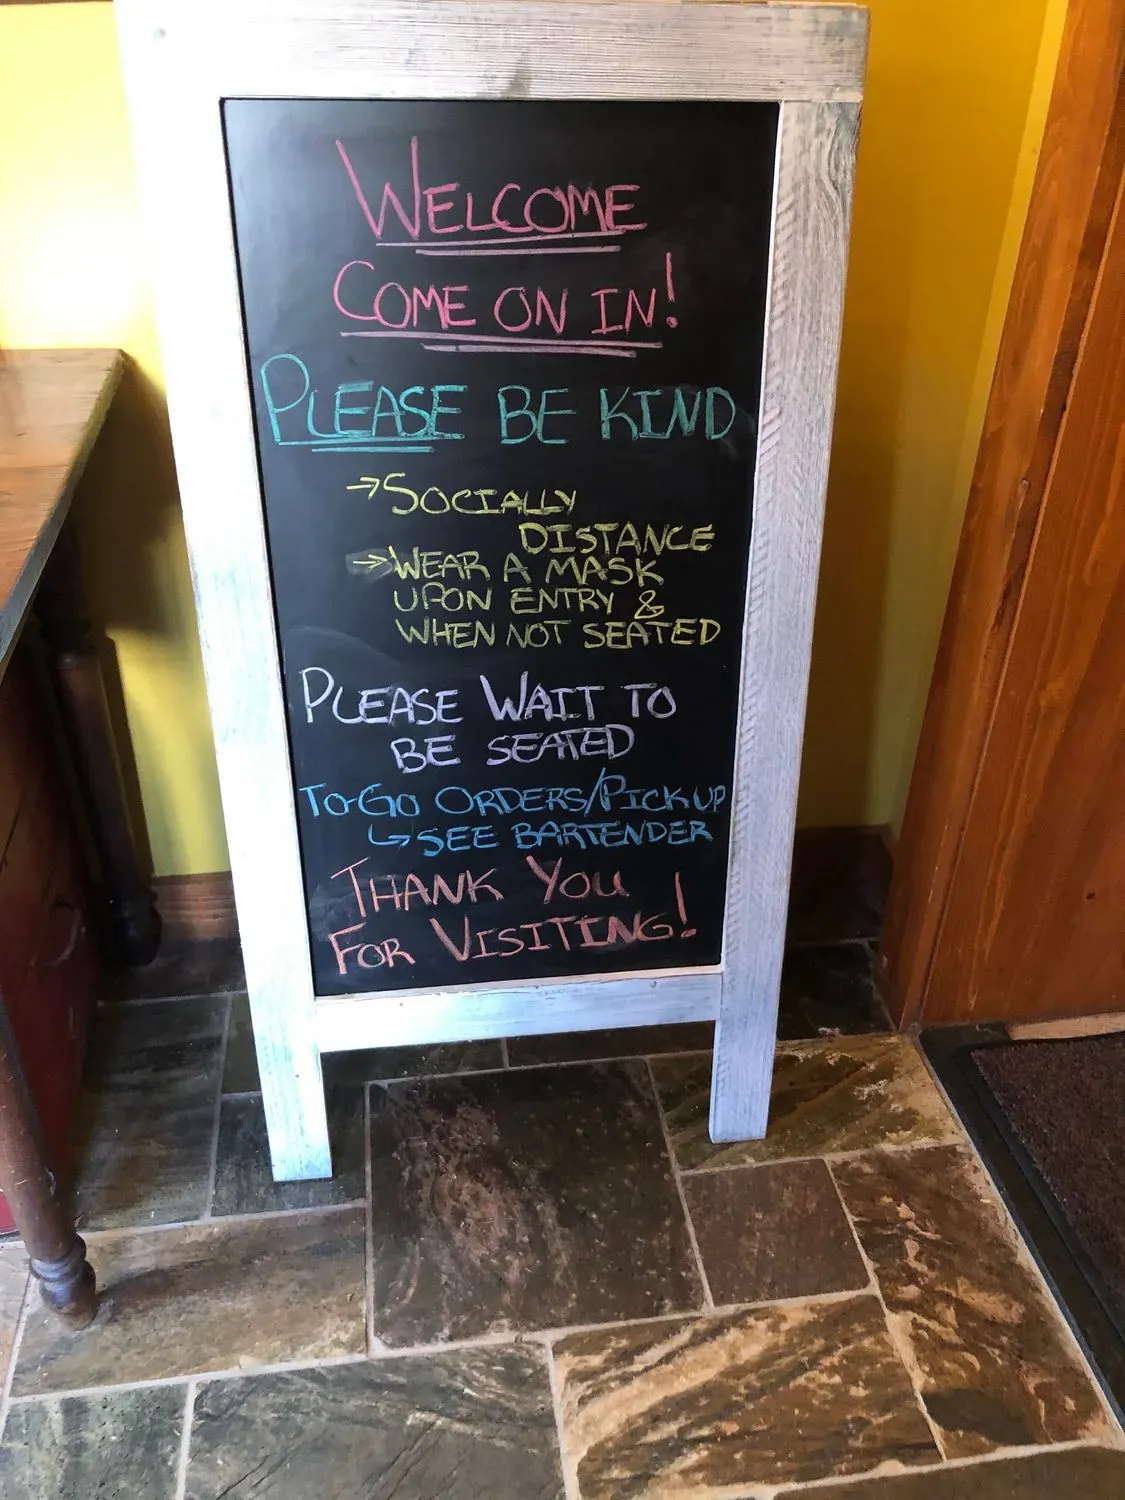 WELCOME
COME ON IN!
PLEASE BE KIND
→SOCIALLY
DISTANCE
→WEAR A MASK
UPON ENTRY &
WHEN NOT SEATED
PLEASE WAIT TO
BE SEATED
TO GO ORDERS/PICK UP
↳SEE BARTENDER
THANK YOU
FOR VISITING!